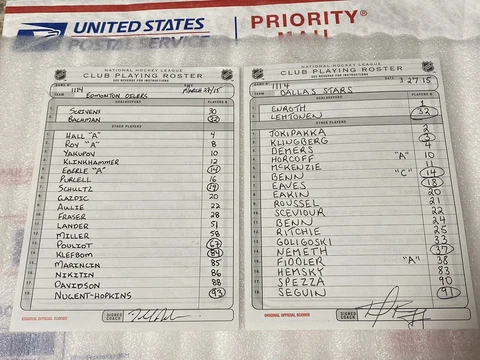 UNITED STATES
POSTAL SERVICE
PRIORITY®
MAIL
NATIONAL HOCKEY LEAGUE
CLUB PLAYING ROSTER
SEE REVERSE FOR INSTRUCTIONS
1114
MARCH 27/15
TEAM
EDMONTON OILERS
GOALKEEPERS
PLAYER #
SCRIVENS 30
BACHMAN 32
OTHER PLAYERS
PLAYER #
HALL "A" 4
ROY "A" 8
YAKUPOV 10
KLINKHAMMER 12
EBERLE "A" 14
PURCELL 16
SCHULTZ 19
GAZDIC 20
AULIE 22
FRASER 28
LANDER 51
MILLER 58
POULIOT 67
KLEFBOM 84
MARINCIN 85
NIKITIN 86
DAVIDSON 88
NUGENT-HOPKINS 93
ORIGINAL: OFFICIAL SCORER
SIGNED
COACH
NATIONAL HOCKEY LEAGUE
CLUB PLAYING ROSTER
SEE REVERSE FOR INSTRUCTIONS
1114
DATE 3-27-15
TEAM
DALLAS STARS
GOALKEEPERS
PLAYER #
ENROTH 1
LEHTONEN 32
OTHER PLAYERS
PLAYER #
JOKIPAKKA 2
KLINGBERG 3
DEMERS 4
HORCOFF "A" 10
MCKENZIE 11
BENN "C" 14
EAVES 18
EAKIN 20
ROUSSEL 21
SCEVIOUR 22
BENN 24
RITCHIE 25
GOLIGOSKI 33
NEMETH 37
FIDDLER "A" 38
HEMSKY 83
SPEZZA 90
SEGUIN 91
ORIGINAL: OFFICIAL SCORER
SIGNED
COACH